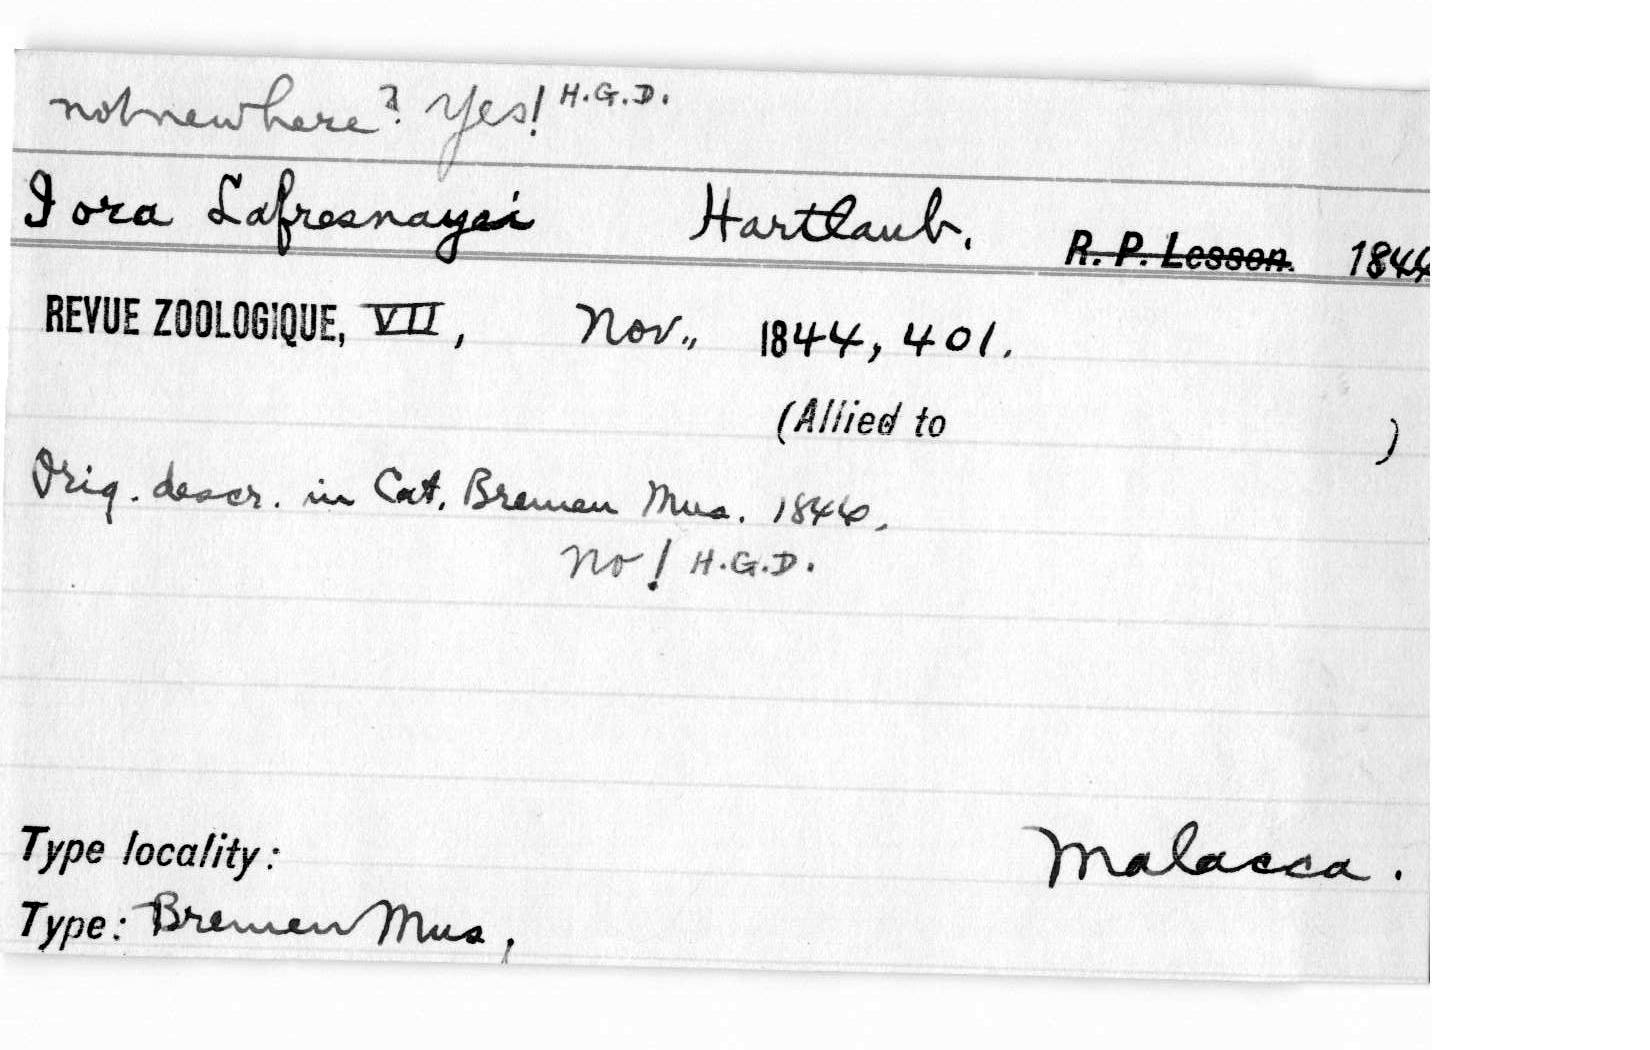 not new here? Yes! H.G.D.
Iora Lafresnayei Hartlaub. R. P. Lesson. 1844
REVUE ZOOLOGIQUE, VII, Nov., 1844, 401.
(Allied to )
Orig. descr. in Cat. Bremen Mus. 1844.
No! H.G.D.
Type locality: Malacca.
Type: Bremen Mus.